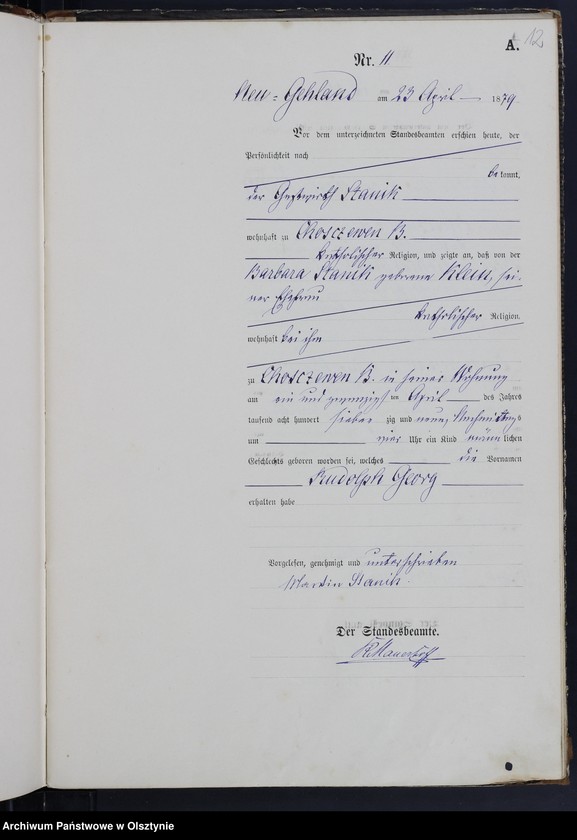 A. 12
Nr. 11
Neu-Gehland am 23 April 1879
Vor dem unterzeichneten Standesbeamten erschien heute, der
Persönlichkeit nach
bekannt,
der Gastwirth Stanik
wohnhaft zu Choszczewen B.
katholischer Religion, und zeigte an, daß von der
Barbara Stanik geborene Klein, sei-
ner Ehefrau
katholischer Religion,
wohnhaft bei ihm
zu Choszczewen B. in seiner Wohnung
am ein und zwanzigsten April des Jahres
tausend acht hundert siebenzig und neun, Nachmittags
um vier Uhr ein Kind männlichen
Geschlechts geboren worden sei, welches die Vornamen
Rudolph Georg
erhalten habe
Vorgelesen, genehmigt und unterschrieben
Martin Stanik
Der Standesbeamte.
Archiwum Państwowe w Olsztynie